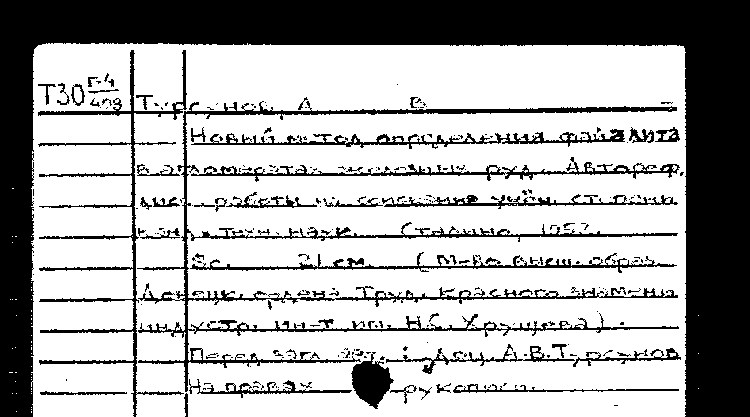 Т30 Г-4
498 Турсунов, А В
Новый метод определения файалита
в агломератах железных руд. Автореф.
дисс. работы на соискание учён. степени
канд. техн. наук. Сталино, 1957.
8с. 21 см. (М-во высш. образ.
Донецк. ордена Труд. Красного знамени
индустр. ин-т им. Н.С. Хрущева).
Перед загл. авт.: Доц. А.В.Турсунов
На правах рукописи.